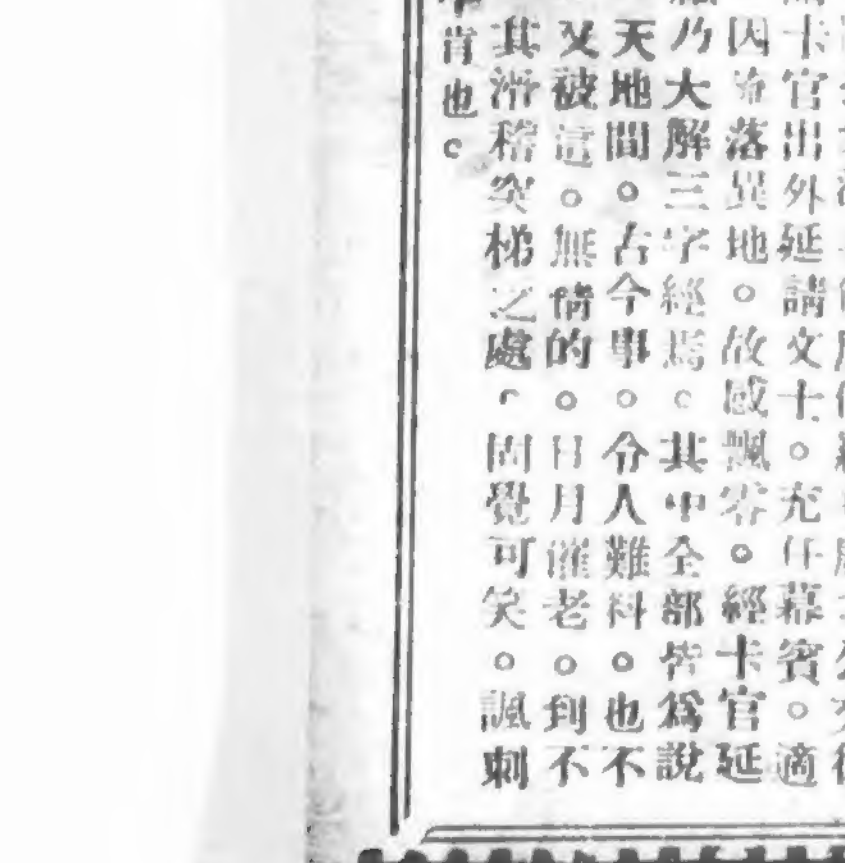 卡官出外延請文士。充任幕賓。適
因流落異地。故感飄零。經卡官延
乃大解三字經焉。其中全部皆爲說
天地間。古今事。令人難料。也不
又被這。無情的。日月催老。到不
其滑稽突梯之處。固覺可笑。諷刺
肯也。